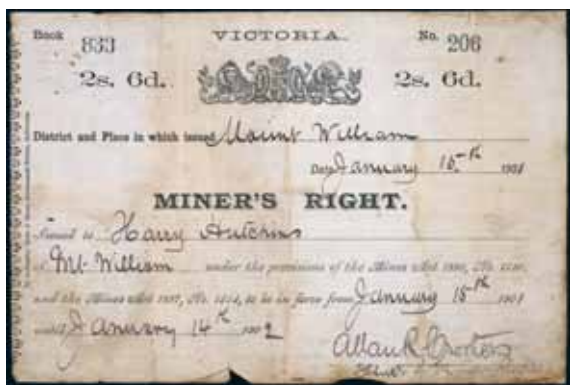 Book 833 VICTORIA. No. 206
2s. 6d. 2s. 6d.
District and Place in which issued Mount William
Date January 15th 1901
MINER'S RIGHT.
Issued to Harry Hutchins
of Mt William under the provisions of the Mines Act 1890, No. 1120,
and the Mines Act 1897, No. 1514, to be in force from January 15th 1901
until January 14th 1902
Allan R.